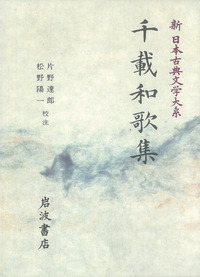 新 日本古典文学大系
千載和歌集
片野達郎
松野陽一 校注
岩波書店